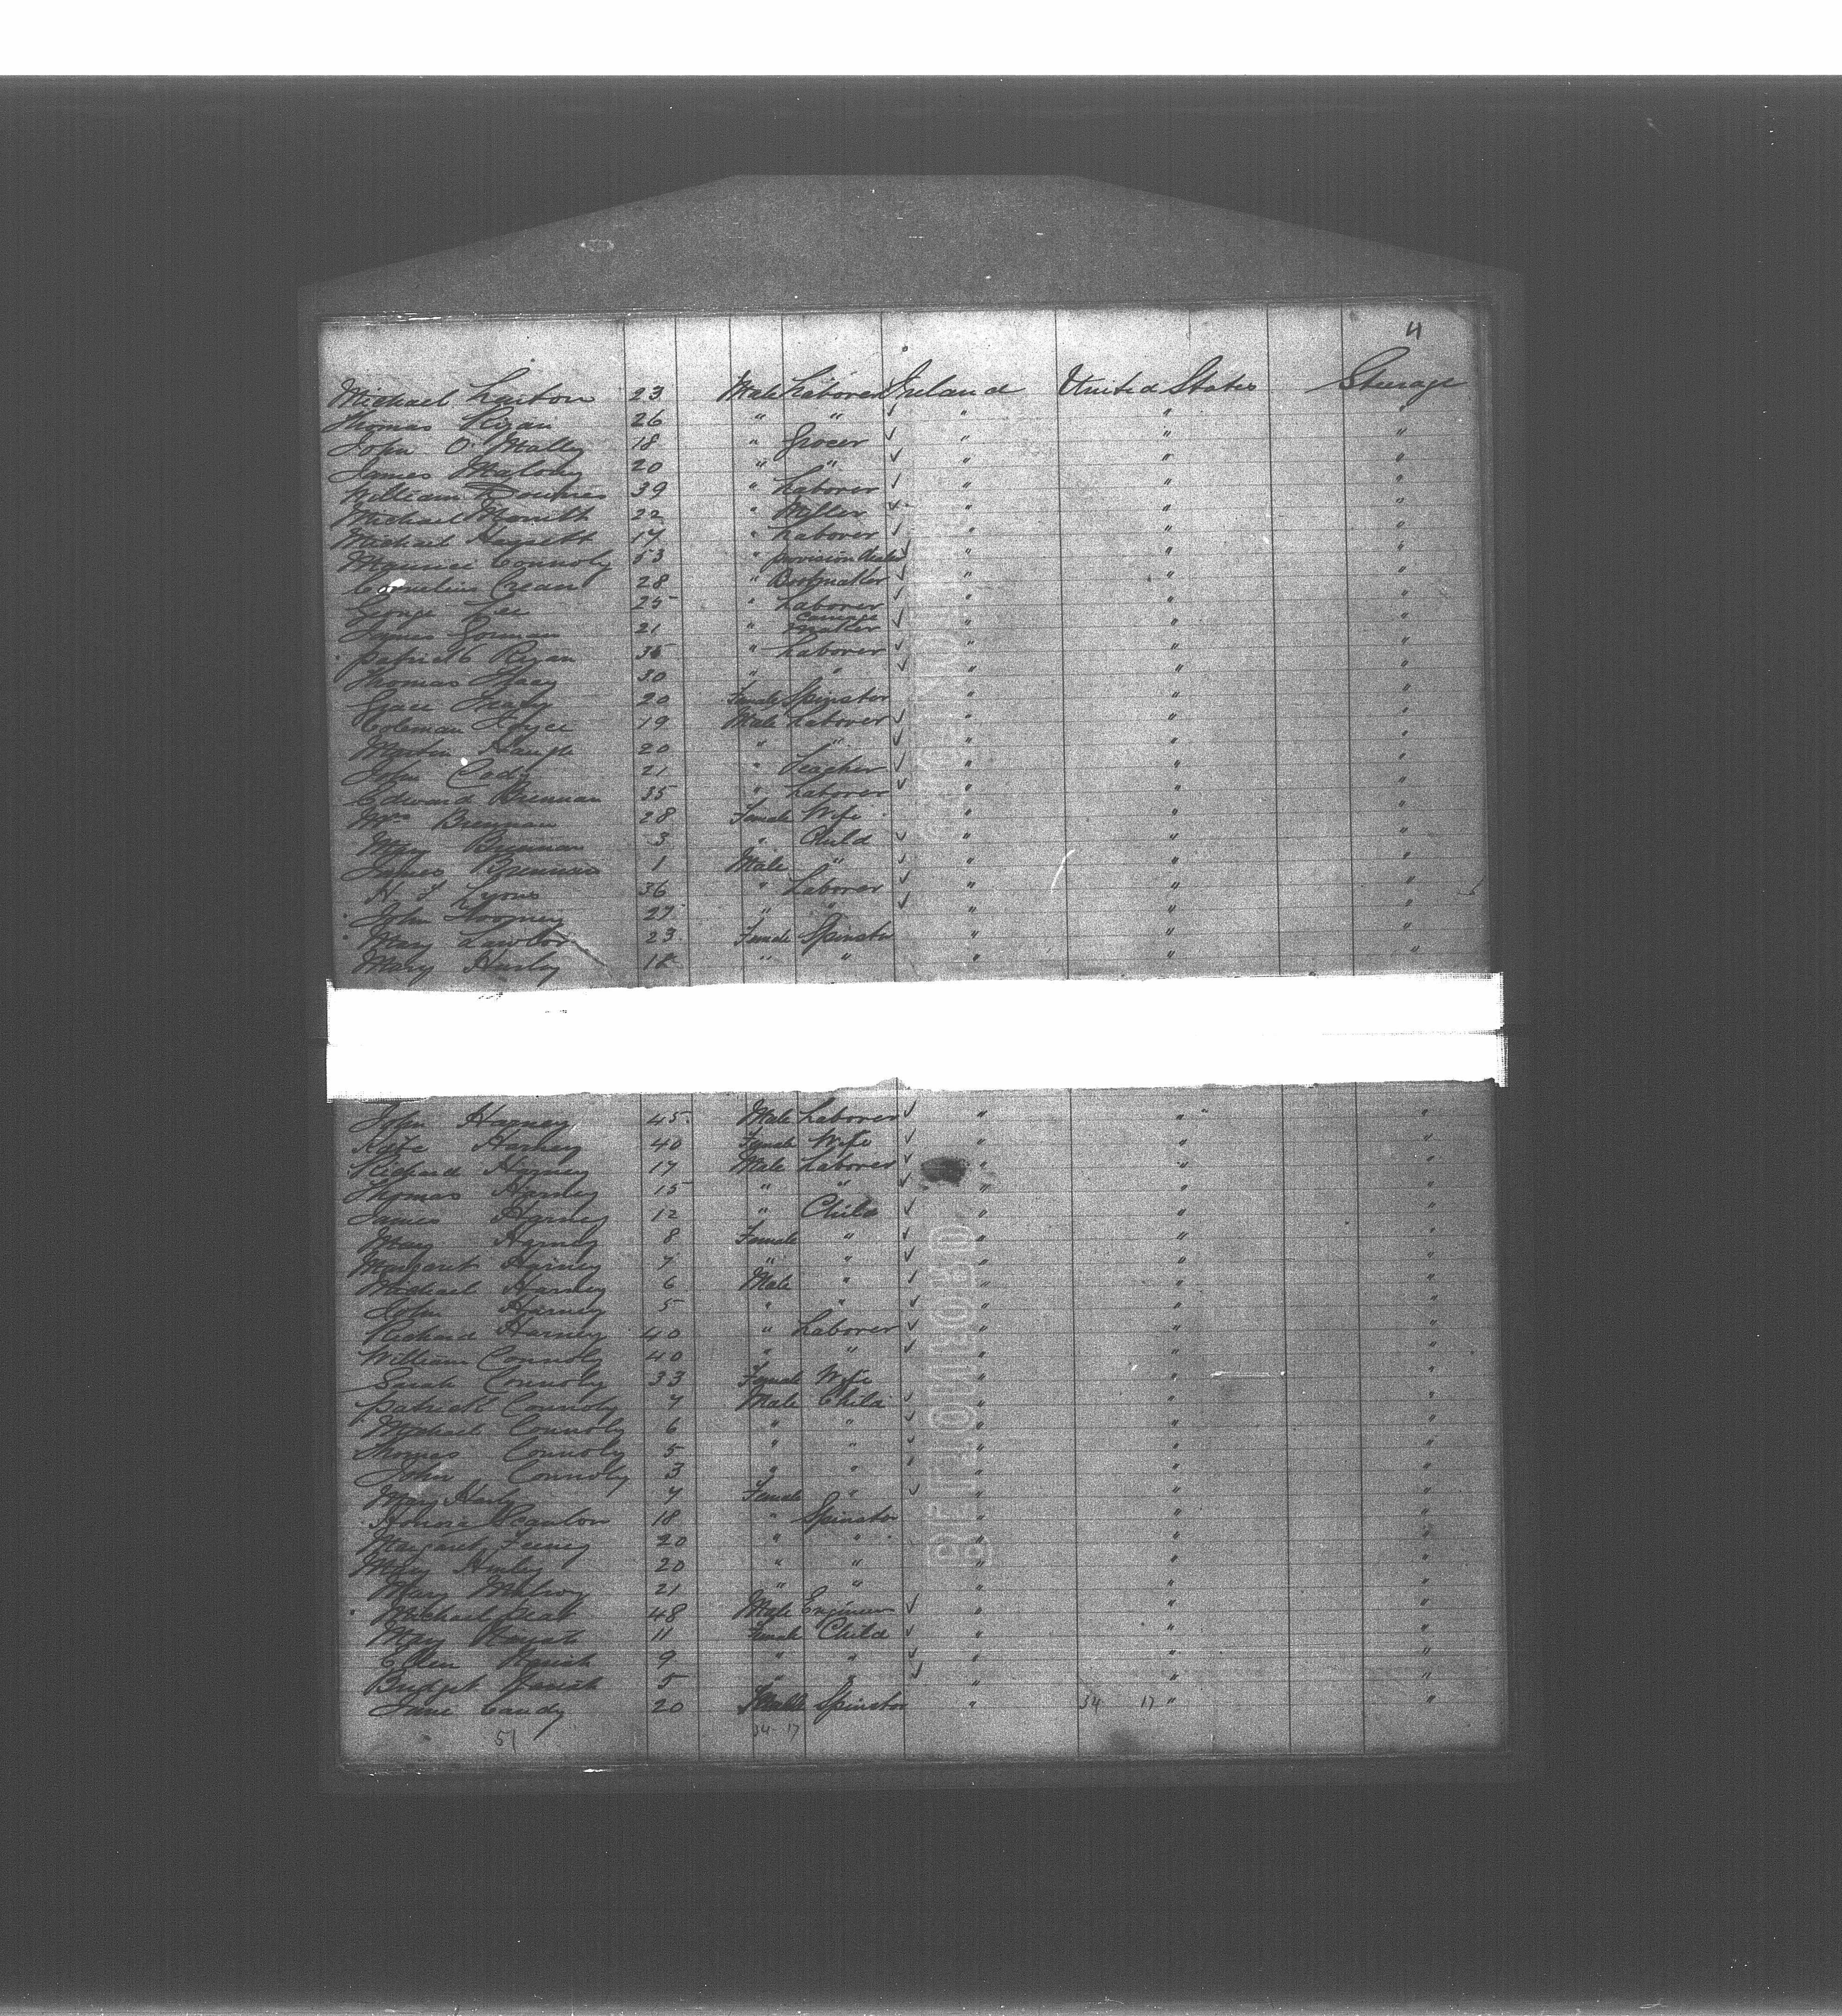 4
Michael Linton 23 Male Laborer Ireland United States Steerage
Thomas Ryan 26 " " ✓ " " "
John O'Mally 18 " Grocer ✓ " " "
James Malony 20 " " ✓ " " "
William Downes 39 " Laborer ✓ " " "
Michael 22 " Miller ✓ " " "
Michael 17 " Laborer ✓ " " "
Maurice Connoly 53 " provision dealer ✓ " " "
Cornelius Crean 28 " Bootmaker ✓ " " "
George Lee 25 " Laborer ✓ " " "
James Gorman 21 " Carriage maker ✓ " " "
Patrick Ryan 35 " Laborer ✓ " " "
Thomas 30 " " ✓ " " "
Grace 20 Female Spinster " " "
Coleman Joyce 19 Male Laborer ✓ " " "
Martin Haugh 20 " " ✓ " " "
John Cady 21 " Teacher ✓ " " "
Edward Brennan 35 " Laborer ✓ " " "
Mrs Brennan 28 Female Wife " " "
Mary Brennan 3 " Child ✓ " " "
James Brennan 1 Male " ✓ " " "
H Lyons 36 " Laborer ✓ " " "
John 27 " " ✓ " " "
Mary Lawlor 23 Female Spinster " " "
Mary Hurly 18 " " " " "
John Harney 45 Male Laborer ✓ " " "
Kate Harney 40 Female Wife ✓ " " "
Richard Harney 17 Male Laborer ✓ " " "
Thomas Harney 15 " " ✓ " " "
James Harney 12 " Child ✓ " " "
Mary Harney 8 Female " ✓ " " "
Margaret Harney 7 " " ✓ " " "
Michael Harney 6 Male " ✓ " " "
John Harney 5 " " ✓ " " "
Richard Harney 40 " Laborer ✓ " " "
William Connoly 40 " " ✓ " " "
Sarah Connoly 33 Female Wife " " "
Patrick Connoly 7 Male Child ✓ " " "
Michael Connoly 6 " " ✓ " " "
Thomas Connoly 5 " " ✓ " " "
John Connoly 3 " " ✓ " " "
Mary 7 Female " ✓ " " "
Honora Scanlon 18 " Spinster " " "
Margaret Feeney 20 " " " " "
Mary 20 " " " " "
Mary Mulroy 21 " " " " "
Michael 48 Male Engineer ✓ " " "
Mary 11 Female Child ✓ " " "
Ellen 9 " " ✓ " " "
Bridget 5 " " ✓ " " "
Jane Candy 20 Female Spinster " 34 17 " "
51 34 17